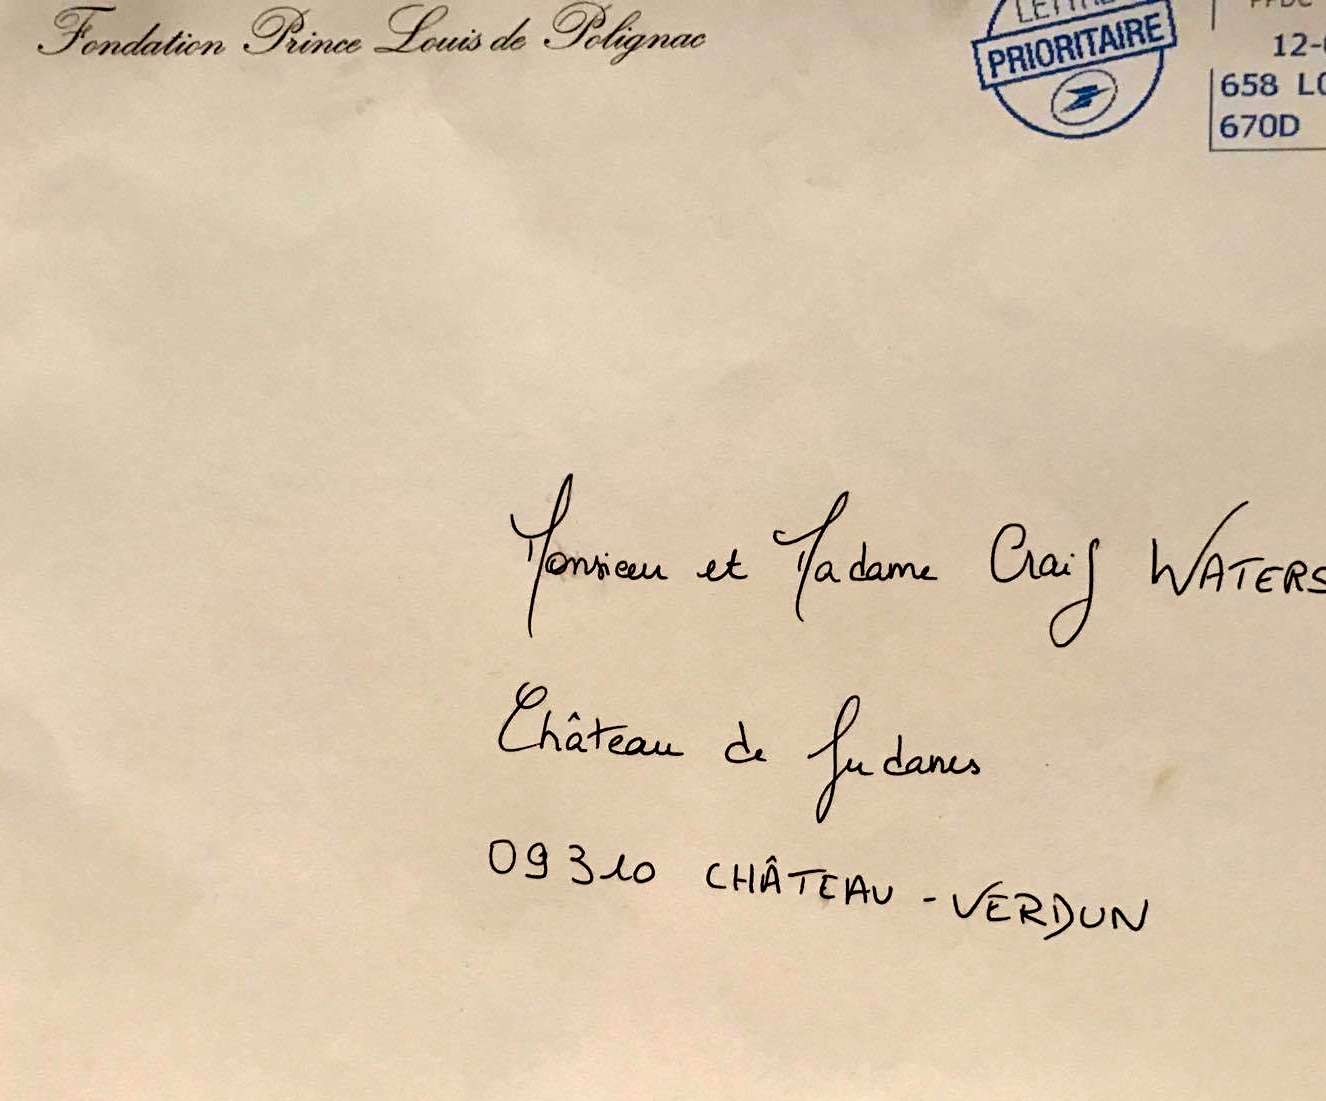 Fondation Prince Louis de Polignac
LETTRE
PRIORITAIRE
12-
658 LO
670D
Monsieur et Madame Craig WATERS
Château de Gudanes
09310 CHÂTEAU-VERDUN